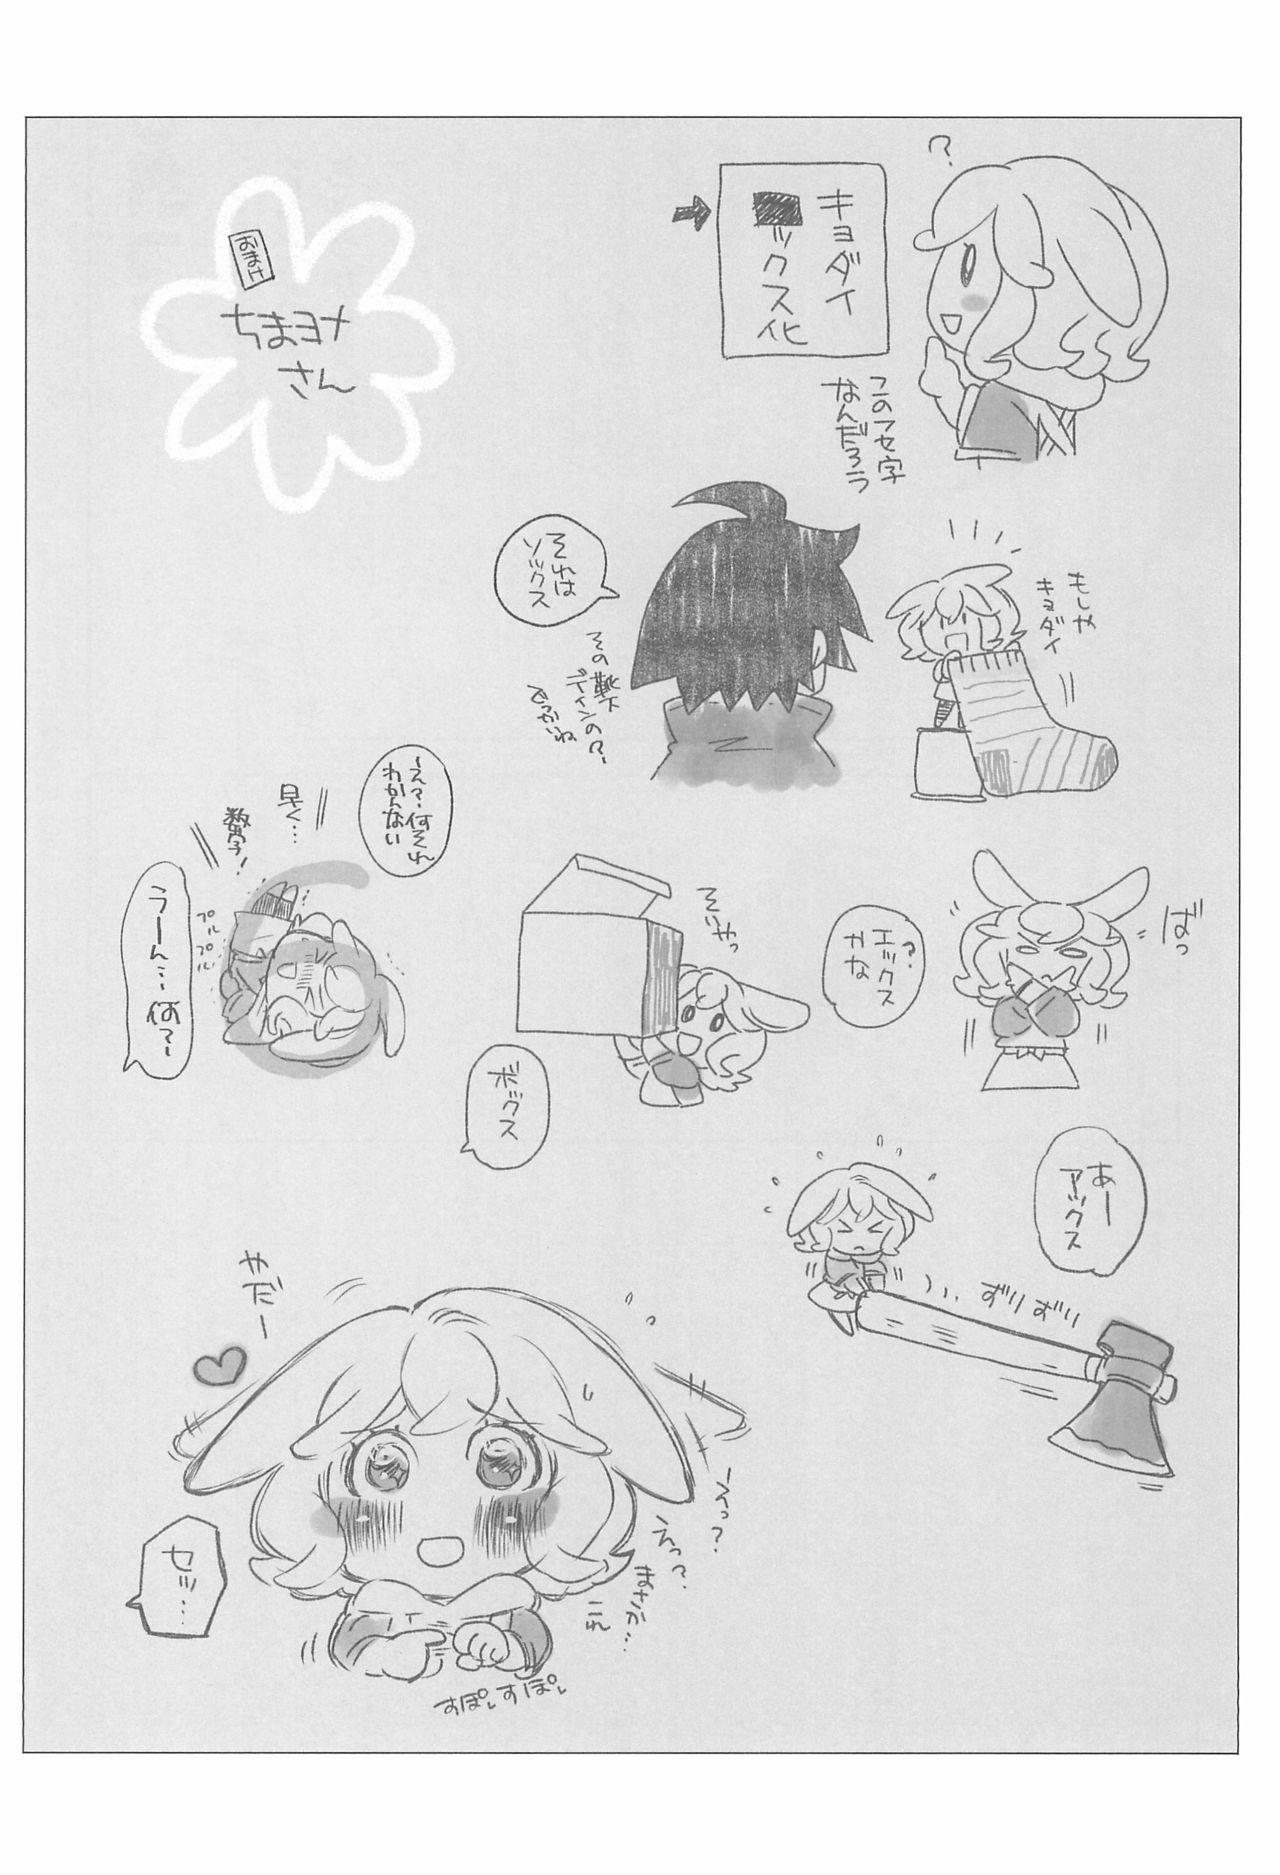 ?
キョダイ
ックス化
このフセ字
なんだろう
おまけ
ちまヨメ
さん
もしや
キョダイ
それは
ソックス
その靴下
ディンの?
でっかいね
ばっ
エックス
かな?
そいやっ
ボックス
えー?何それ
わかんない
早く…
数字!
プルプル
うーん…何?
あー
アックス
ずりずり
えっ?
えっ?
まさか…
これ
やだー
すぽすぽ
セッ…